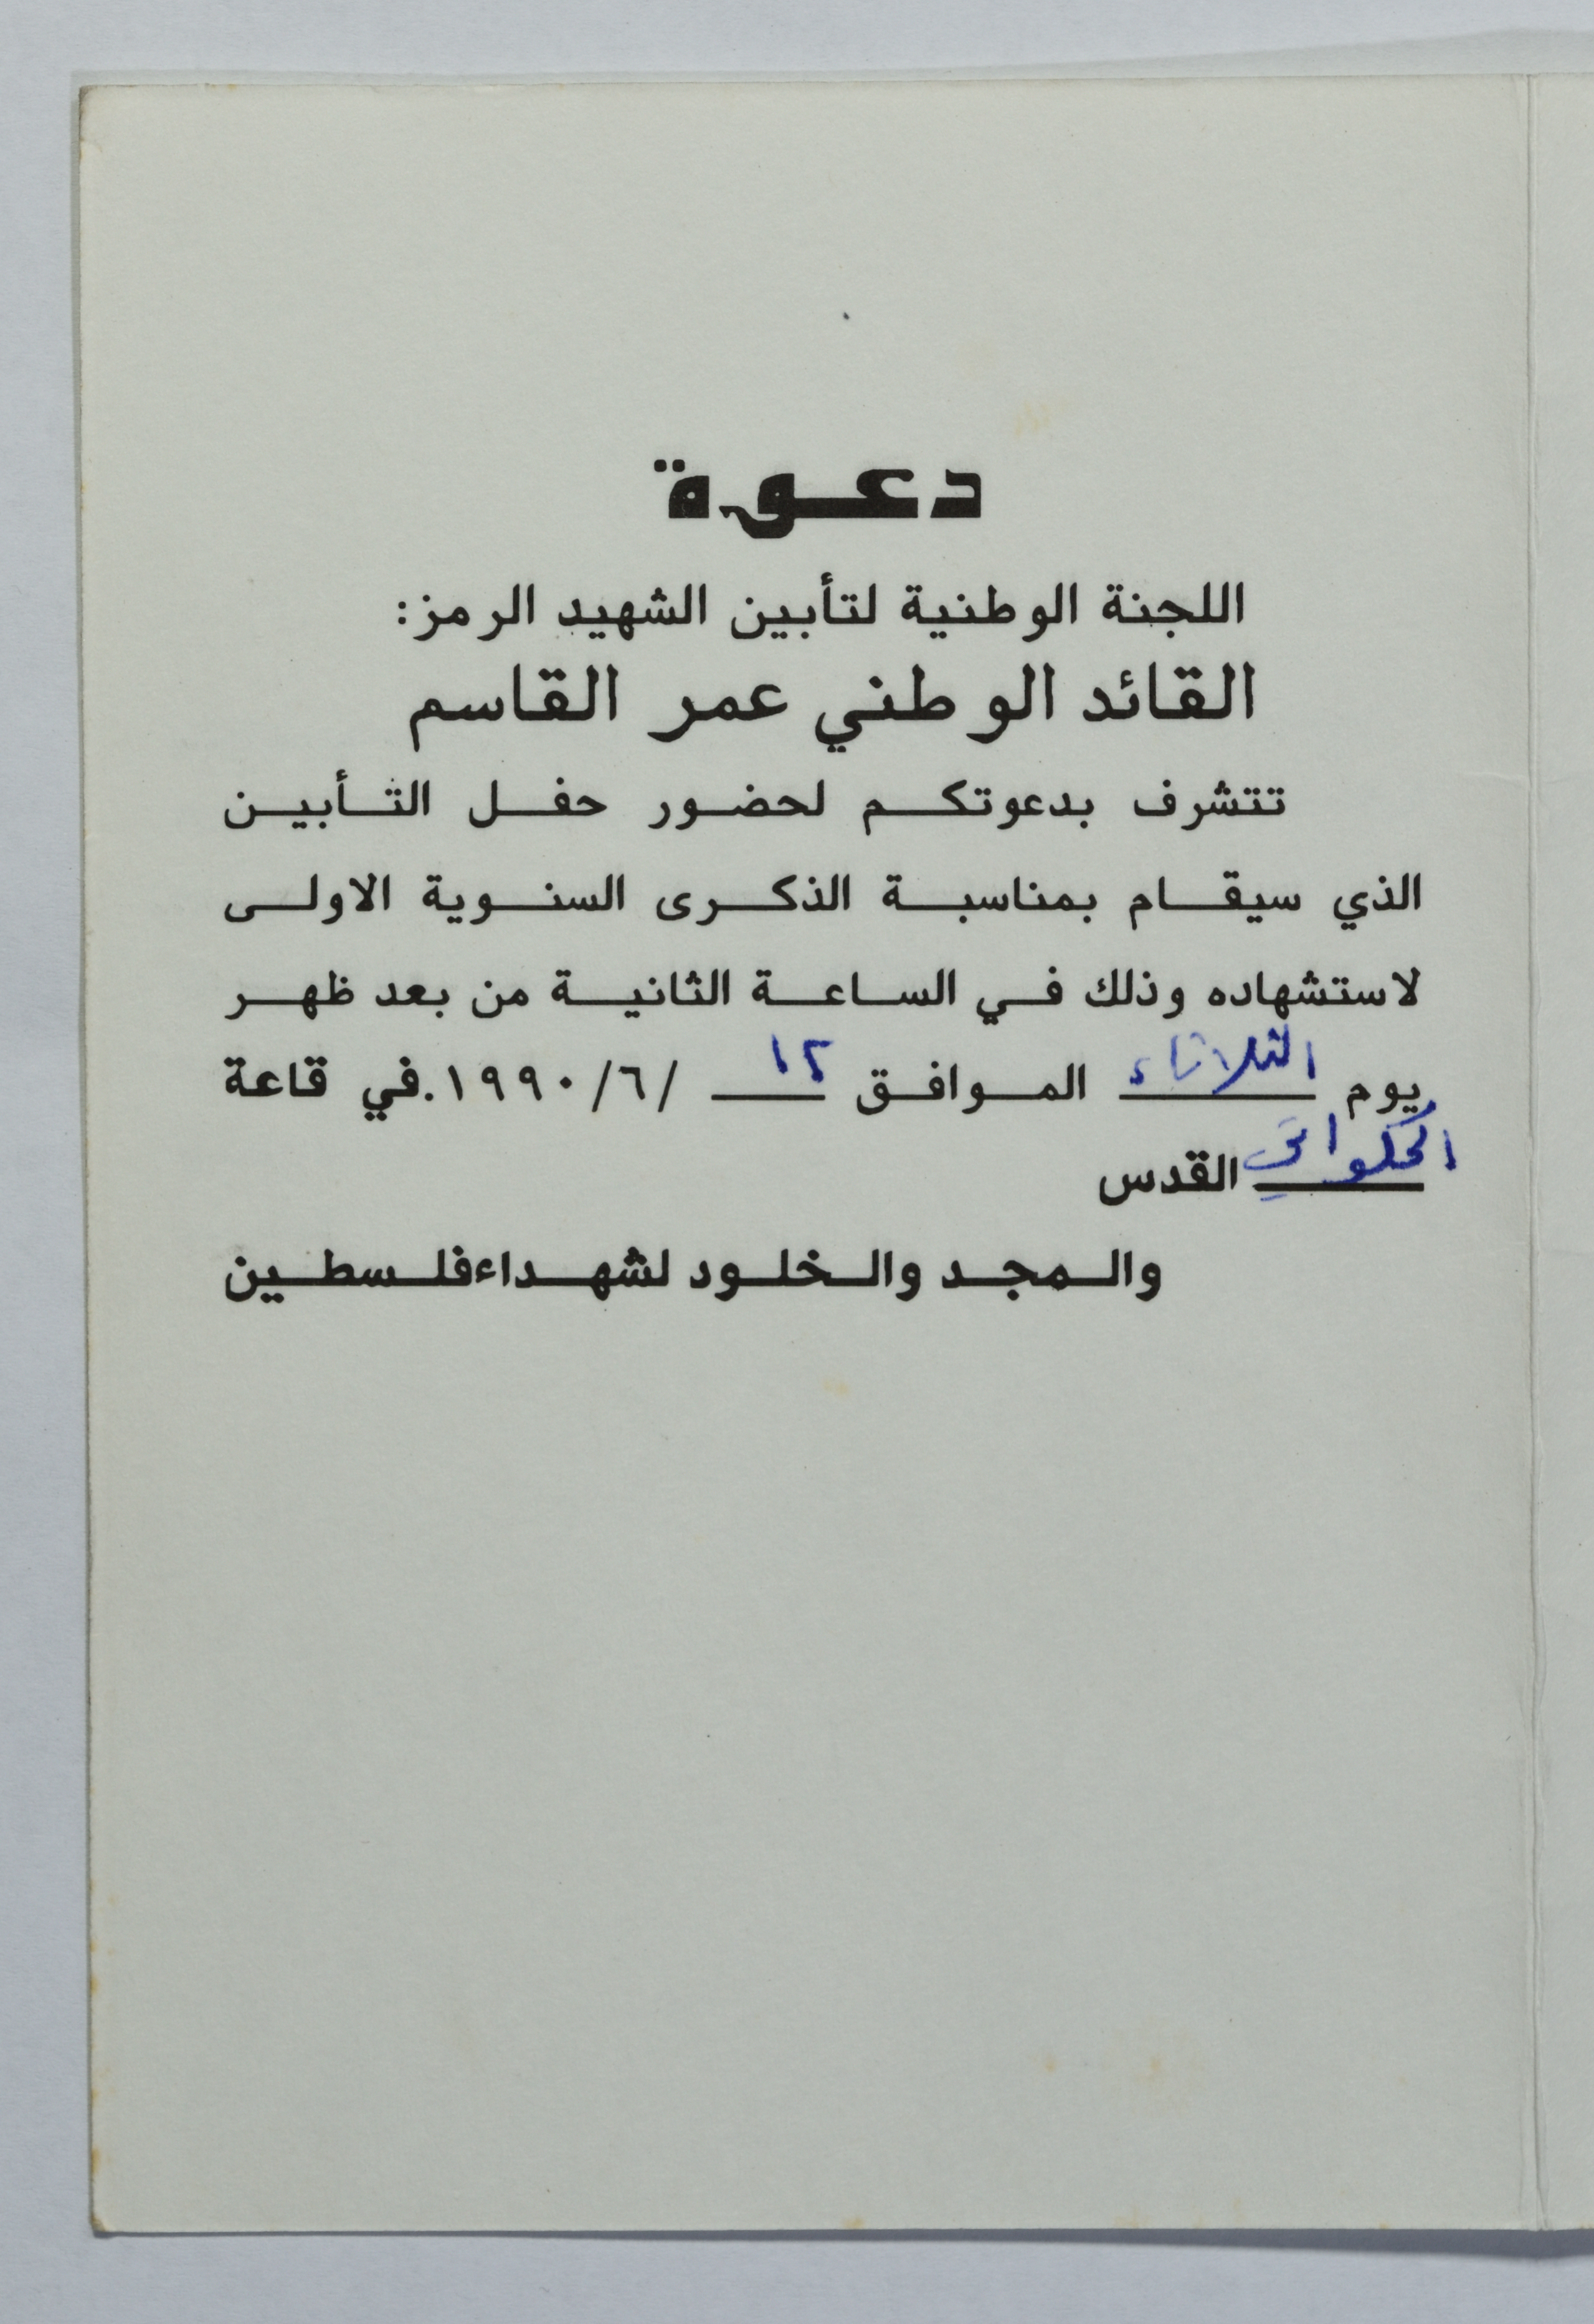 دعوة
اللجنة الوطنية لتأبين الشهيد الرمز:
القائد الوطني عمر القاسم
تتشرف بدعوتكم لحضور حفل التأبين
الذي سيقام بمناسبة الذكرى السنوية الاولى
لاستشهاده وذلك في الساعة الثانية من بعد ظهر
يوم الثلاثاء الموافق ١٢ /٦/ ١٩٩٠.في قاعة
الحكواتي القدس
والمجد والخلود لشهداء فلسطين